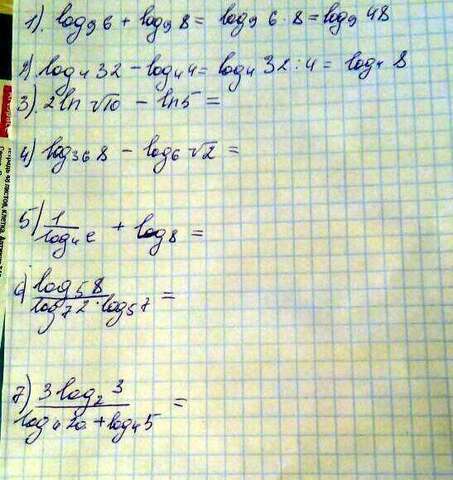 1). log₉6 + log₉8 = log₉ 6·8 = log₉ 48
2). log₄32 - log₄4 = log₄ 32:4 = log₄ 8
3). 2ln √10 - ln5 =
4) log₃₆8 - log₆√2 =
5) 1/log₄e + log8 =
6) log₅8/log₇2·log₅7 =
7) 3log₂3/log₄20 + log₄5 =